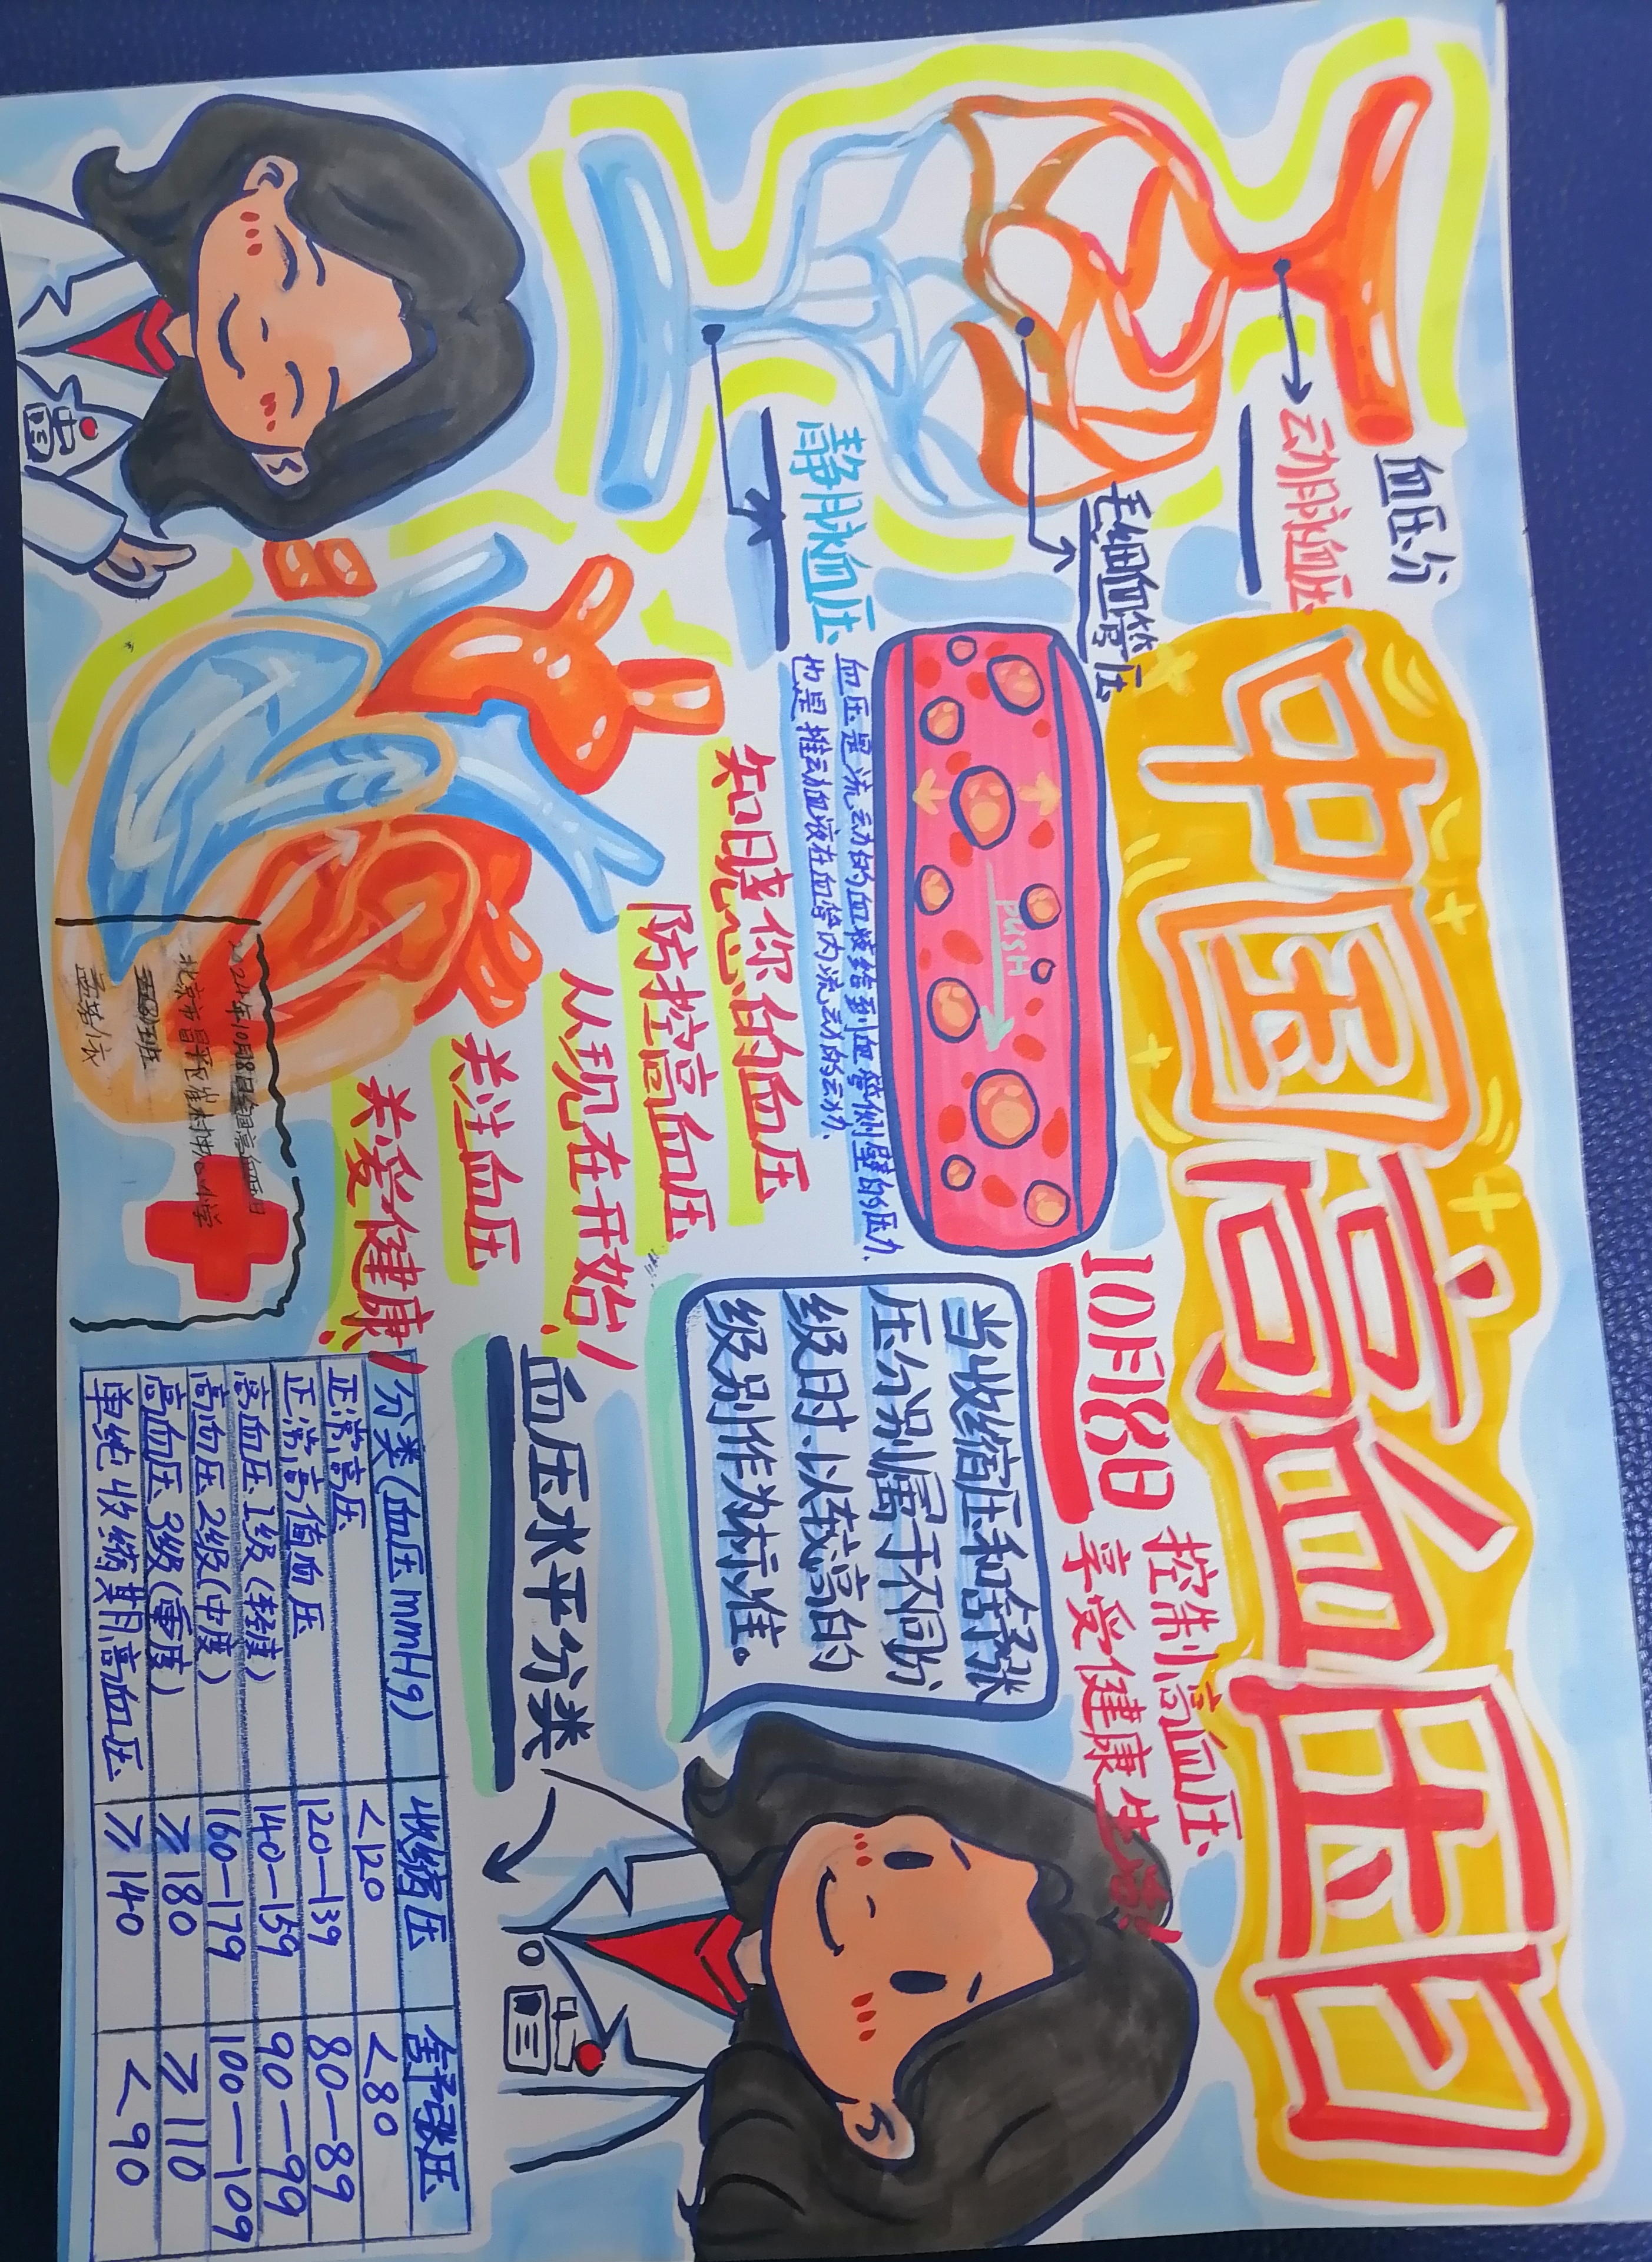 中国高血压日
血压分
动脉血压
毛细血管压
静脉血压
10月8日
控制高血压
享受健康生活
PUSH
血压是流动的血液给到血管侧壁的压力、
也是推动血液在血管内流动的动力、
知晓你的血压
防控高血压
从现在开始!
关注血压
关爱健康!
当收缩压和舒张
压分别属于不同分
级时、以较高的
级别作为标准。
血压水平分类
分类(血压mmHg) 收缩压 舒张压
正常高压 <120 <80
正常高值血压 120—139 80—89
高血压1级(轻度) 140—159 90—99
高血压2级(中度) 160—179 100—109
高血压3级(重度) ≥180 ≥110
单纯收缩期高血压 ≥140 <90
2024年10月8日全国高血压日
北京市昌平区